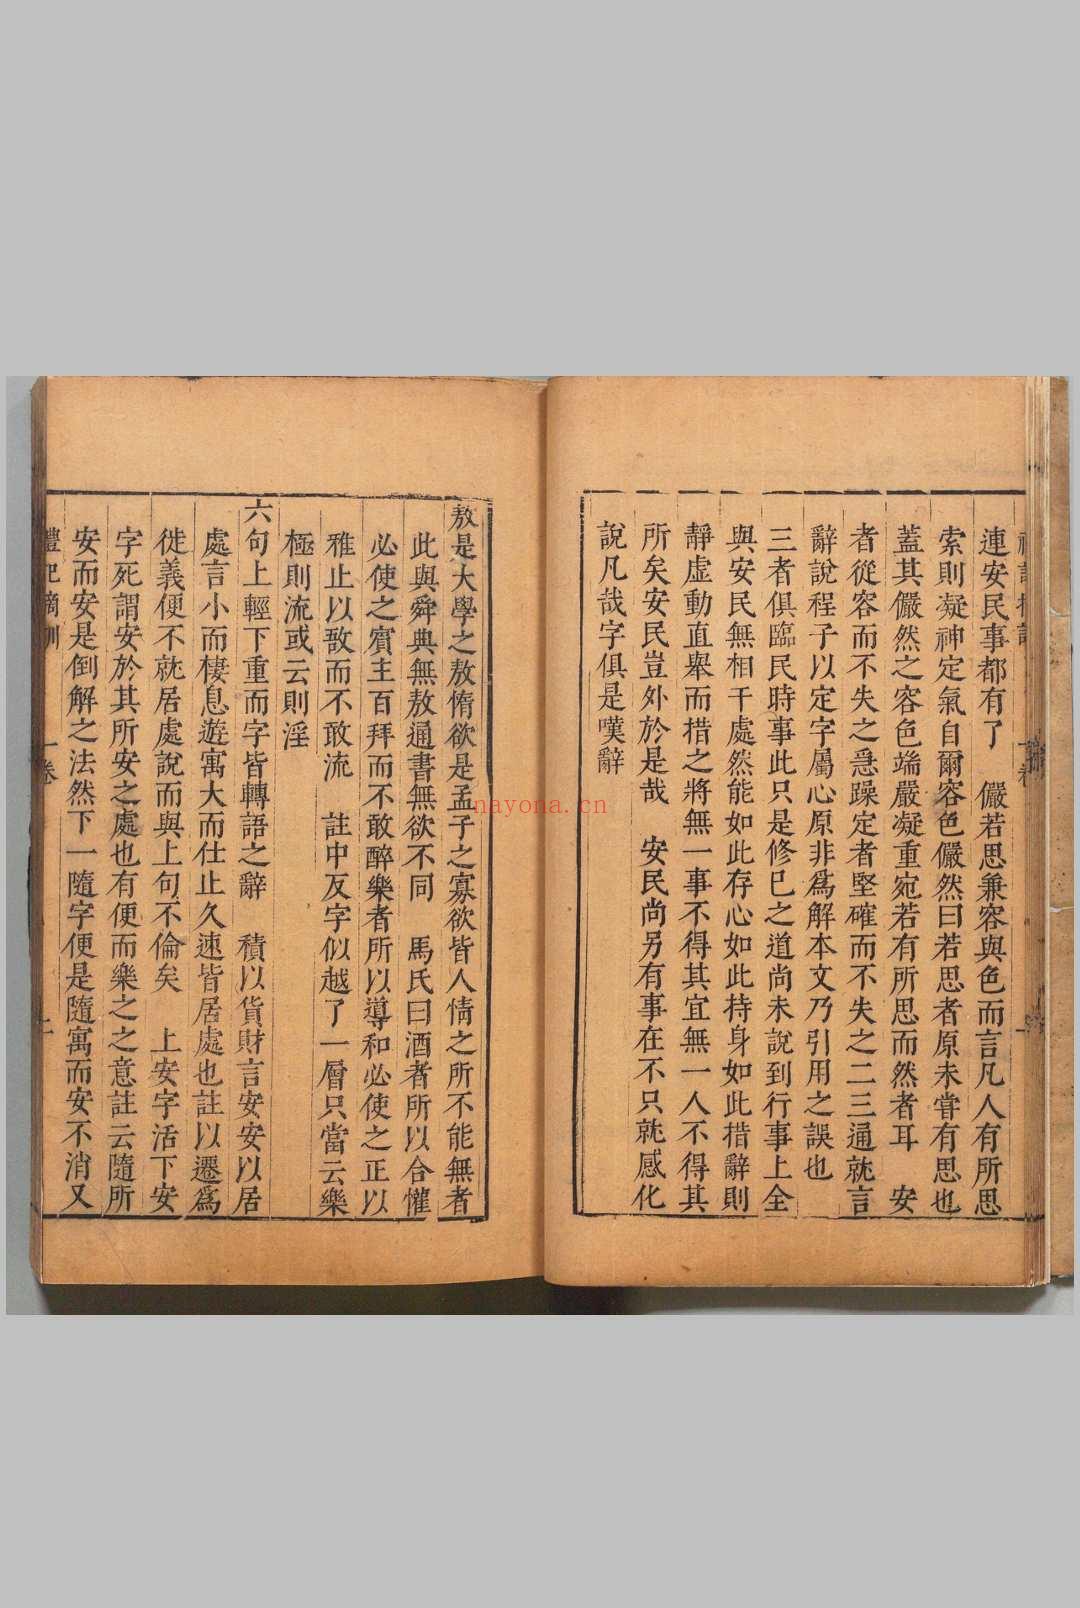 連安民事都有了　儼若思兼容與色而言凡人有所思
索則凝神定氣自爾容色儼然曰若思者原未甞有思也
蓋其儼然之容色端嚴凝重宛若有所思而然者耳　安
者從容而不失之急躁定者堅確而不失之二三通就言
辭說程子以定字屬心原非爲解本文乃引用之誤也
三者俱臨民時事此只是修已之道尚未說到行事上全
與安民無相干處然能如此存心如此持身如此措辭則
靜虛動直舉而措之將無一事不得其宜無一人不得其
所矣安民豈外於是哉　安民尚另有事在不只就感化
說凡哉字俱是嘆辭
敖是大學之敖惰欲是孟子之寡欲皆人情之所不能無者
此與舜典無敖通書無欲不同　馬氏曰酒者所以合懽
必使之賓主百拜而不敢醉樂者所以導和必使之正以
雅止以敔而不敢流　註中反字似越了一層只當云樂
極則流或云則淫
六句上輕下重而字皆轉語之辭　積以貨財言安安以居
處言小而棲息遊寓大而仕止久速皆居處也註以遷爲
徙義便不就居處說而與上句不倫矣　上安字活下安
字死謂安於其所安之處也有便而樂之之意註云隨所
安而安是倒解之法然下一隨字便是隨寓而安不消又
禮記摘訓
一卷
nayona.cn